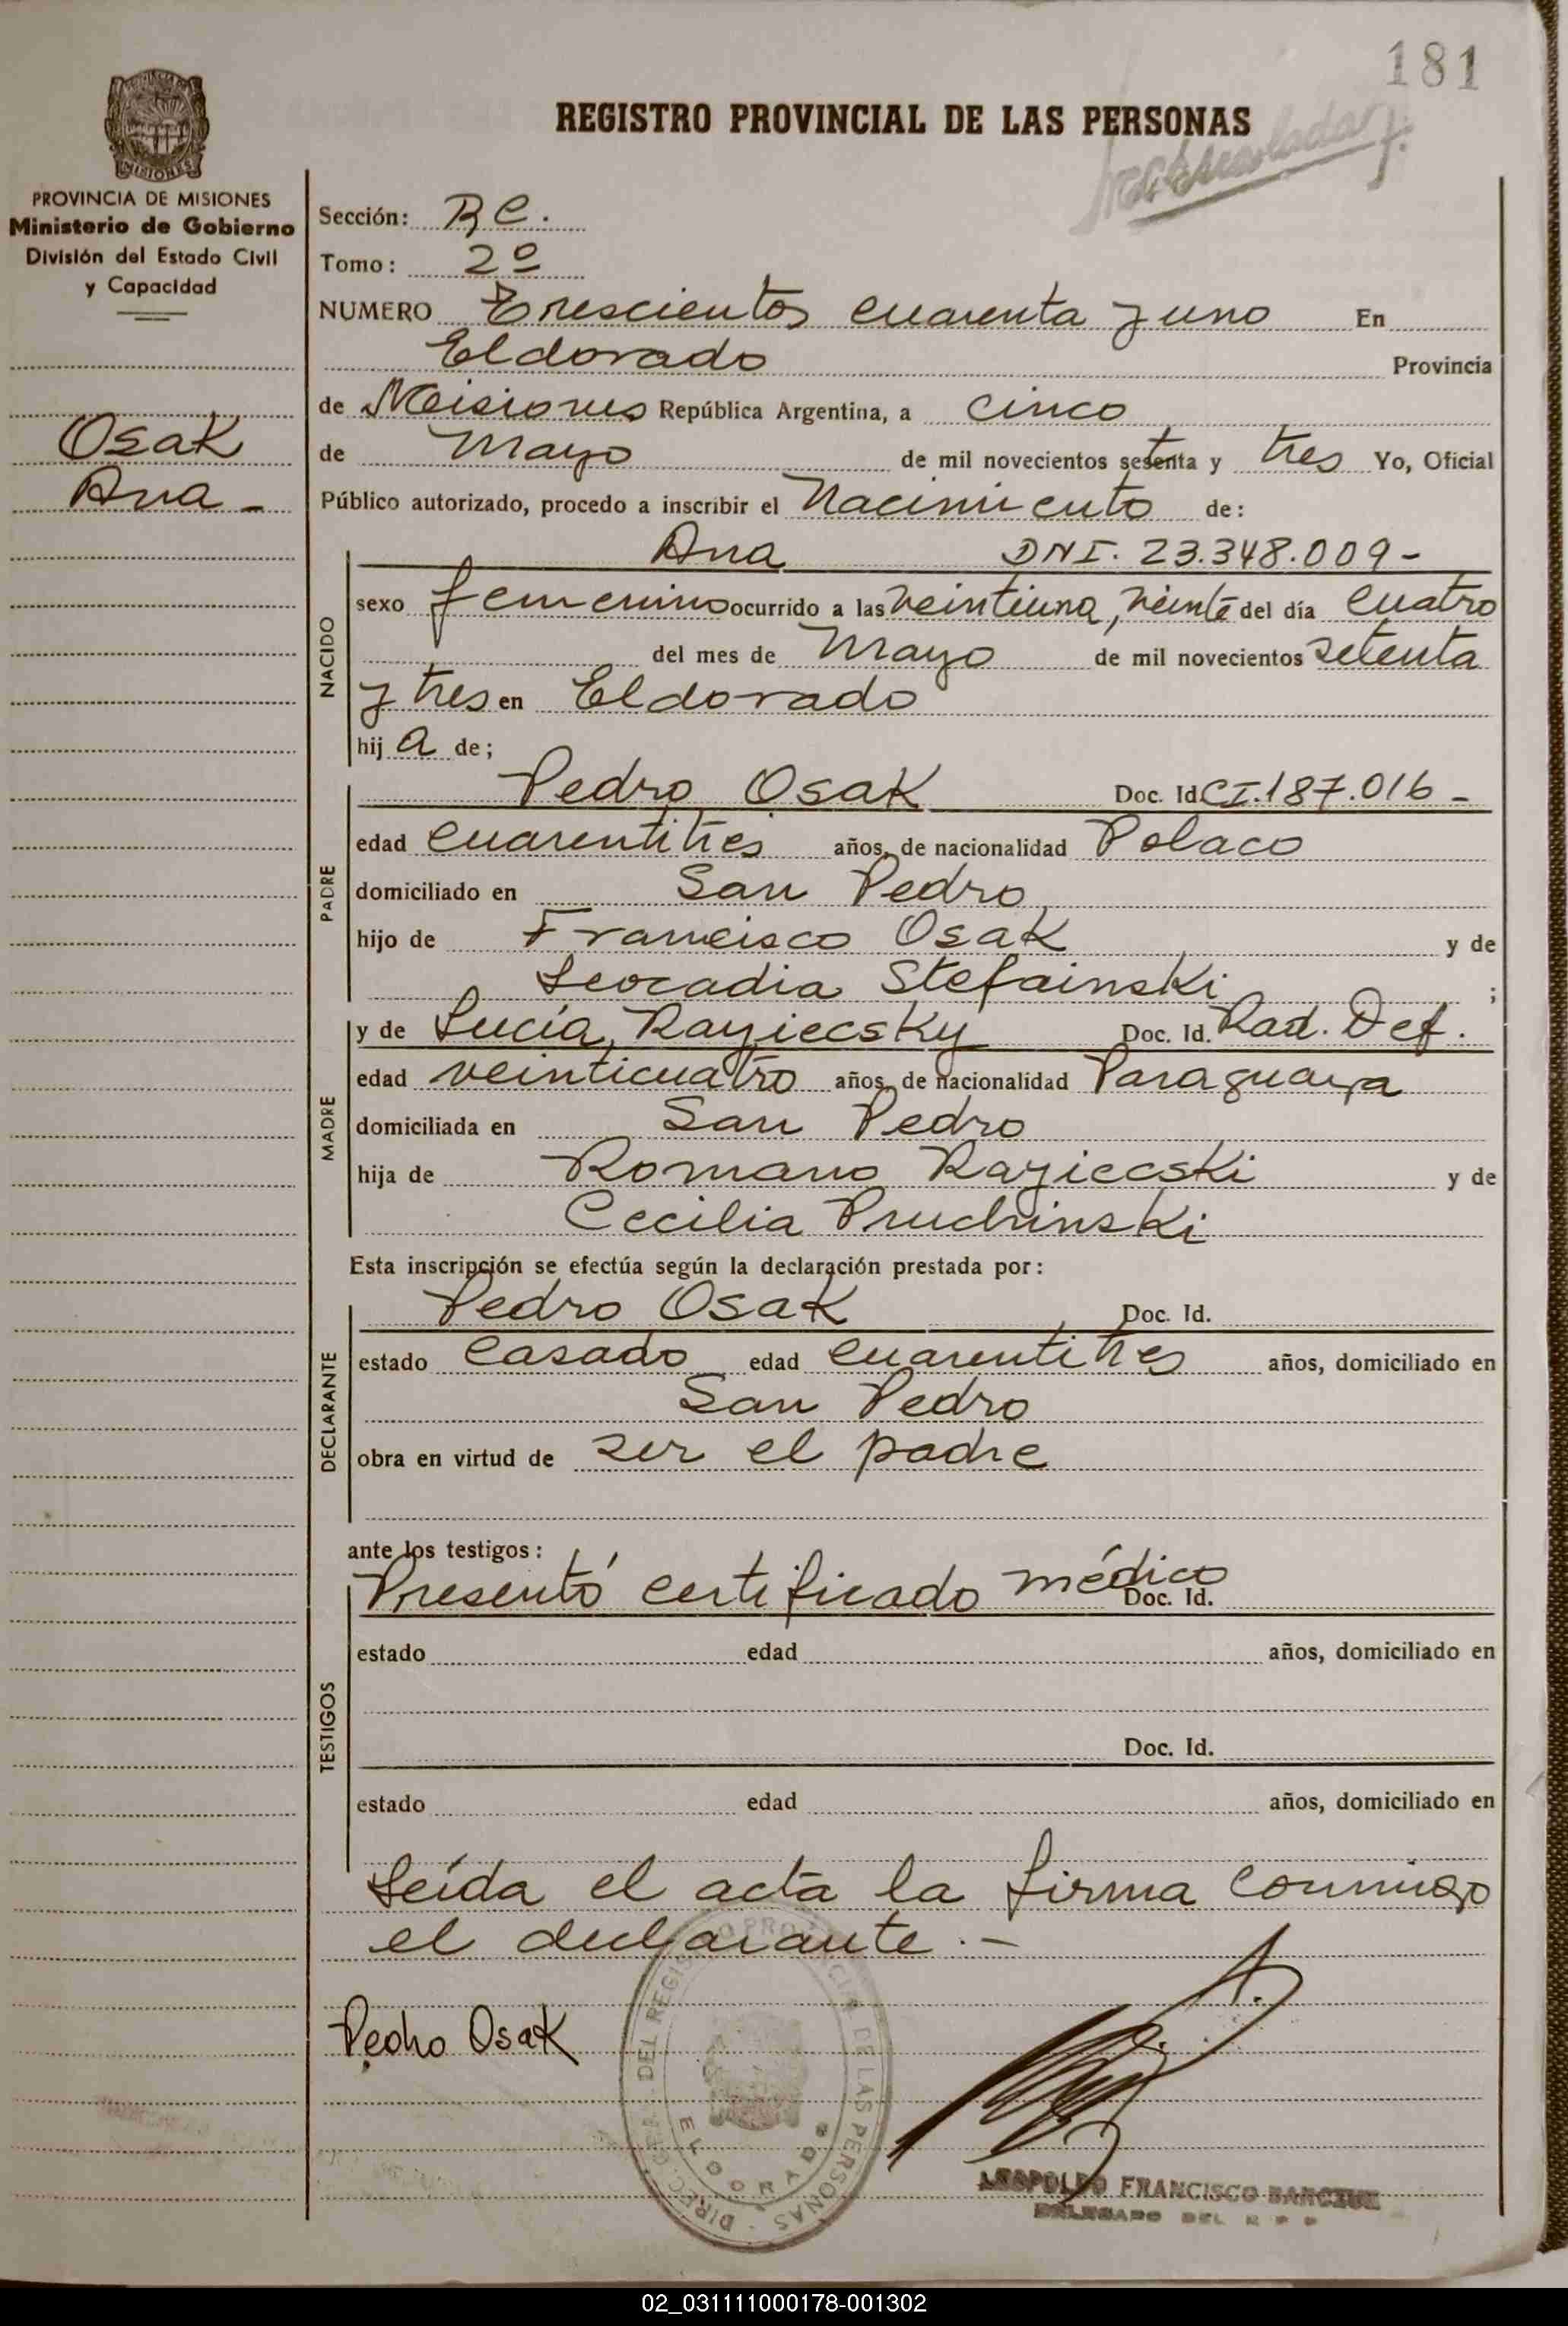 181
REGISTRO PROVINCIAL DE LAS PERSONAS
MISIONES
PROVINCIA DE MISIONES
Ministerio de Gobierno
División del Estado Civil
y Capacidad
Osak
Ana -
Sección: RC.
Tomo: 2º
NUMERO Trescientos cuarenta y uno En
Eldorado Provincia
de Misiones República Argentina, a cinco
de Mayo de mil novecientos setenta y tres Yo, Oficial
Público autorizado, procedo a inscribir el Nacimiento de:
Ana DNI. 23.348.009-
NACIDO
sexo femenino ocurrido a las veintiuna, veinte del día cuatro
del mes de Mayo de mil novecientos setenta
y tres en Eldorado
hija de;
PADRE
Pedro Osak Doc. Id CI.187.016-
edad cuarentitres años, de nacionalidad Polaco
domiciliado en San Pedro
hijo de Francisco Osak y de
Leocadia Stefainski ;
MADRE
y de Lucía Rayiecsky Doc. Id. Rad. Def.
edad veinticuatro años, de nacionalidad Paraguaya
domiciliada en San Pedro
hija de Romano Rayiecski y de
Cecilia Pruchinski
Esta inscripción se efectúa según la declaración prestada por:
DECLARANTE
Pedro Osak Doc. Id.
estado Casado edad cuarentitres años, domiciliado en
San Pedro
obra en virtud de ser el padre
ante los testigos:
TESTIGOS
Presentó certificado médico Doc. Id.
estado edad años, domiciliado en
Doc. Id.
estado edad años, domiciliado en
Leída el acta la firma conmigo
el declarante.-
Pedro Osak
DIREC. GRAL. DEL REGISTRO PROVINCIAL DE LAS PERSONAS
ELDORADO
LEOPOLDO FRANCISCO
DELEGADO DEL R P P
02_031111000178-001302